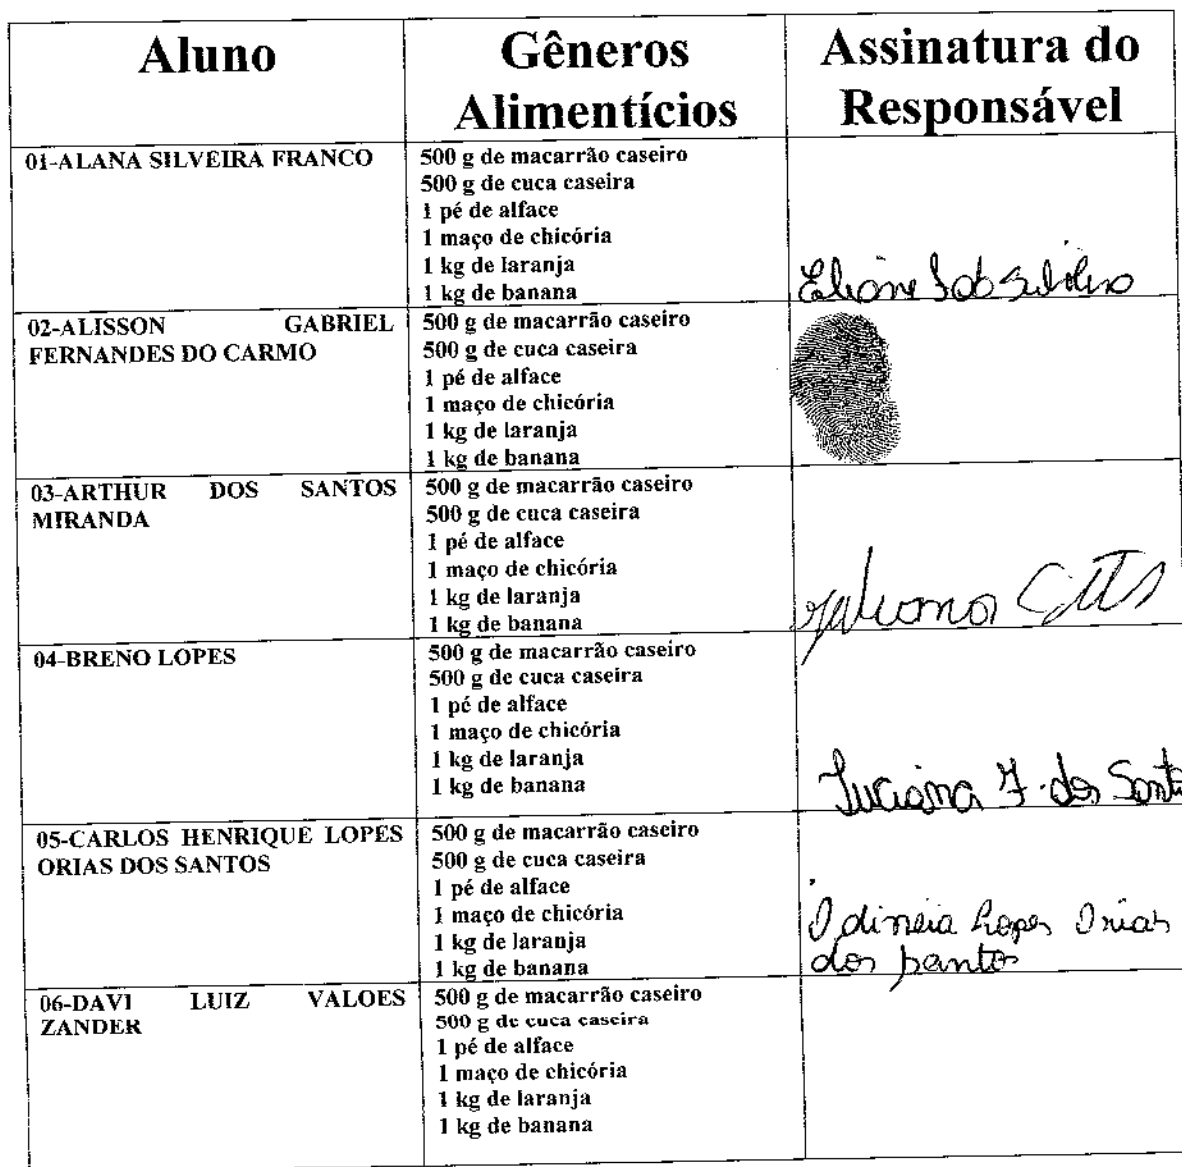 Aluno
Gêneros
Alimentícios
Assinatura do
Responsável
01-ALANA SILVEIRA FRANCO
500 g de macarrão caseiro
500 g de cuca caseira
1 pé de alface
1 maço de chicória
1 kg de laranja
1 kg de banana
02-ALISSON GABRIEL
FERNANDES DO CARMO
500 g de macarrão caseiro
500 g de cuca caseira
1 pé de alface
1 maço de chicória
1 kg de laranja
1 kg de banana
03-ARTHUR DOS SANTOS
MIRANDA
500 g de macarrão caseiro
500 g de cuca caseira
1 pé de alface
1 maço de chicória
1 kg de laranja
1 kg de banana
04-BRENO LOPES
500 g de macarrão caseiro
500 g de cuca caseira
1 pé de alface
1 maço de chicória
1 kg de laranja
1 kg de banana
Luciana F. dos Sant
05-CARLOS HENRIQUE LOPES
ORIAS DOS SANTOS
500 g de macarrão caseiro
500 g de cuca caseira
1 pé de alface
1 maço de chicória
1 kg de laranja
1 kg de banana
Odineia Lopes Orias
dos santos
06-DAVI LUIZ VALOES
ZANDER
500 g de macarrão caseiro
500 g de cuca caseira
1 pé de alface
1 maço de chicória
1 kg de laranja
1 kg de banana